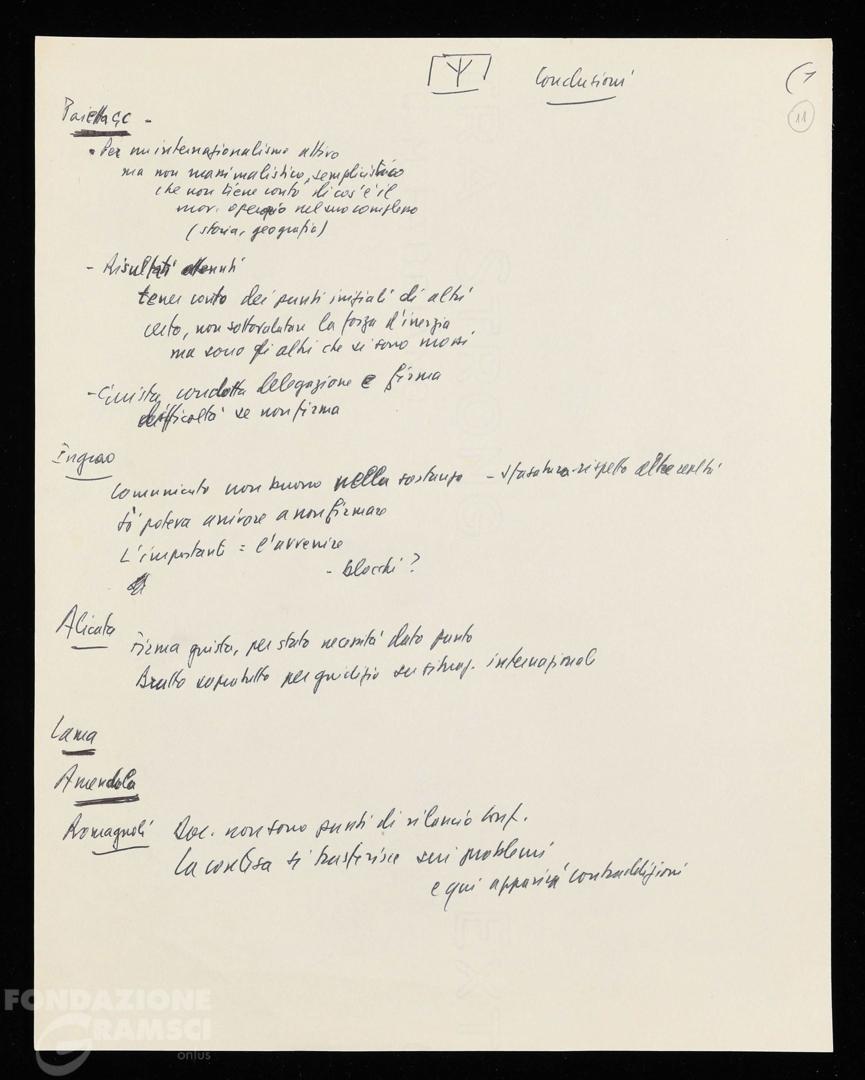 Ψ Conclusioni (1
11
Paietta GC -
• Per un internazionalismo attivo
ma non massimalistico, semplicistico
che non tiene conto di cos'è il
mov. operaio nel suo complesso
(storia, geografia)
- Risultati ottenuti
tener conto dei punti iniziali di altri
certo, non sottovalutare la forza d'inerzia
ma sono gli altri che si sono mossi
- Giusta condotta delegazione e firma
difficoltà se non firma
Ingrao
Comunicato non buono nella sostanza - sfasatura rispetto alla realtà
Si poteva arrivare a non firmare
L'importante = l'avvenire
- blocchi?
Alicata
Firma giusta, per stato necessità dato punto
Brutto soprattutto per giudizio su situaz. internazionale
Lama
Amendola
Romagnoli Doc. non sono punti di rilancio conf.
La contesa si trasferisce sui problemi
e qui apparirà contraddizioni
FONDAZIONE
GRAMSCI
onlus